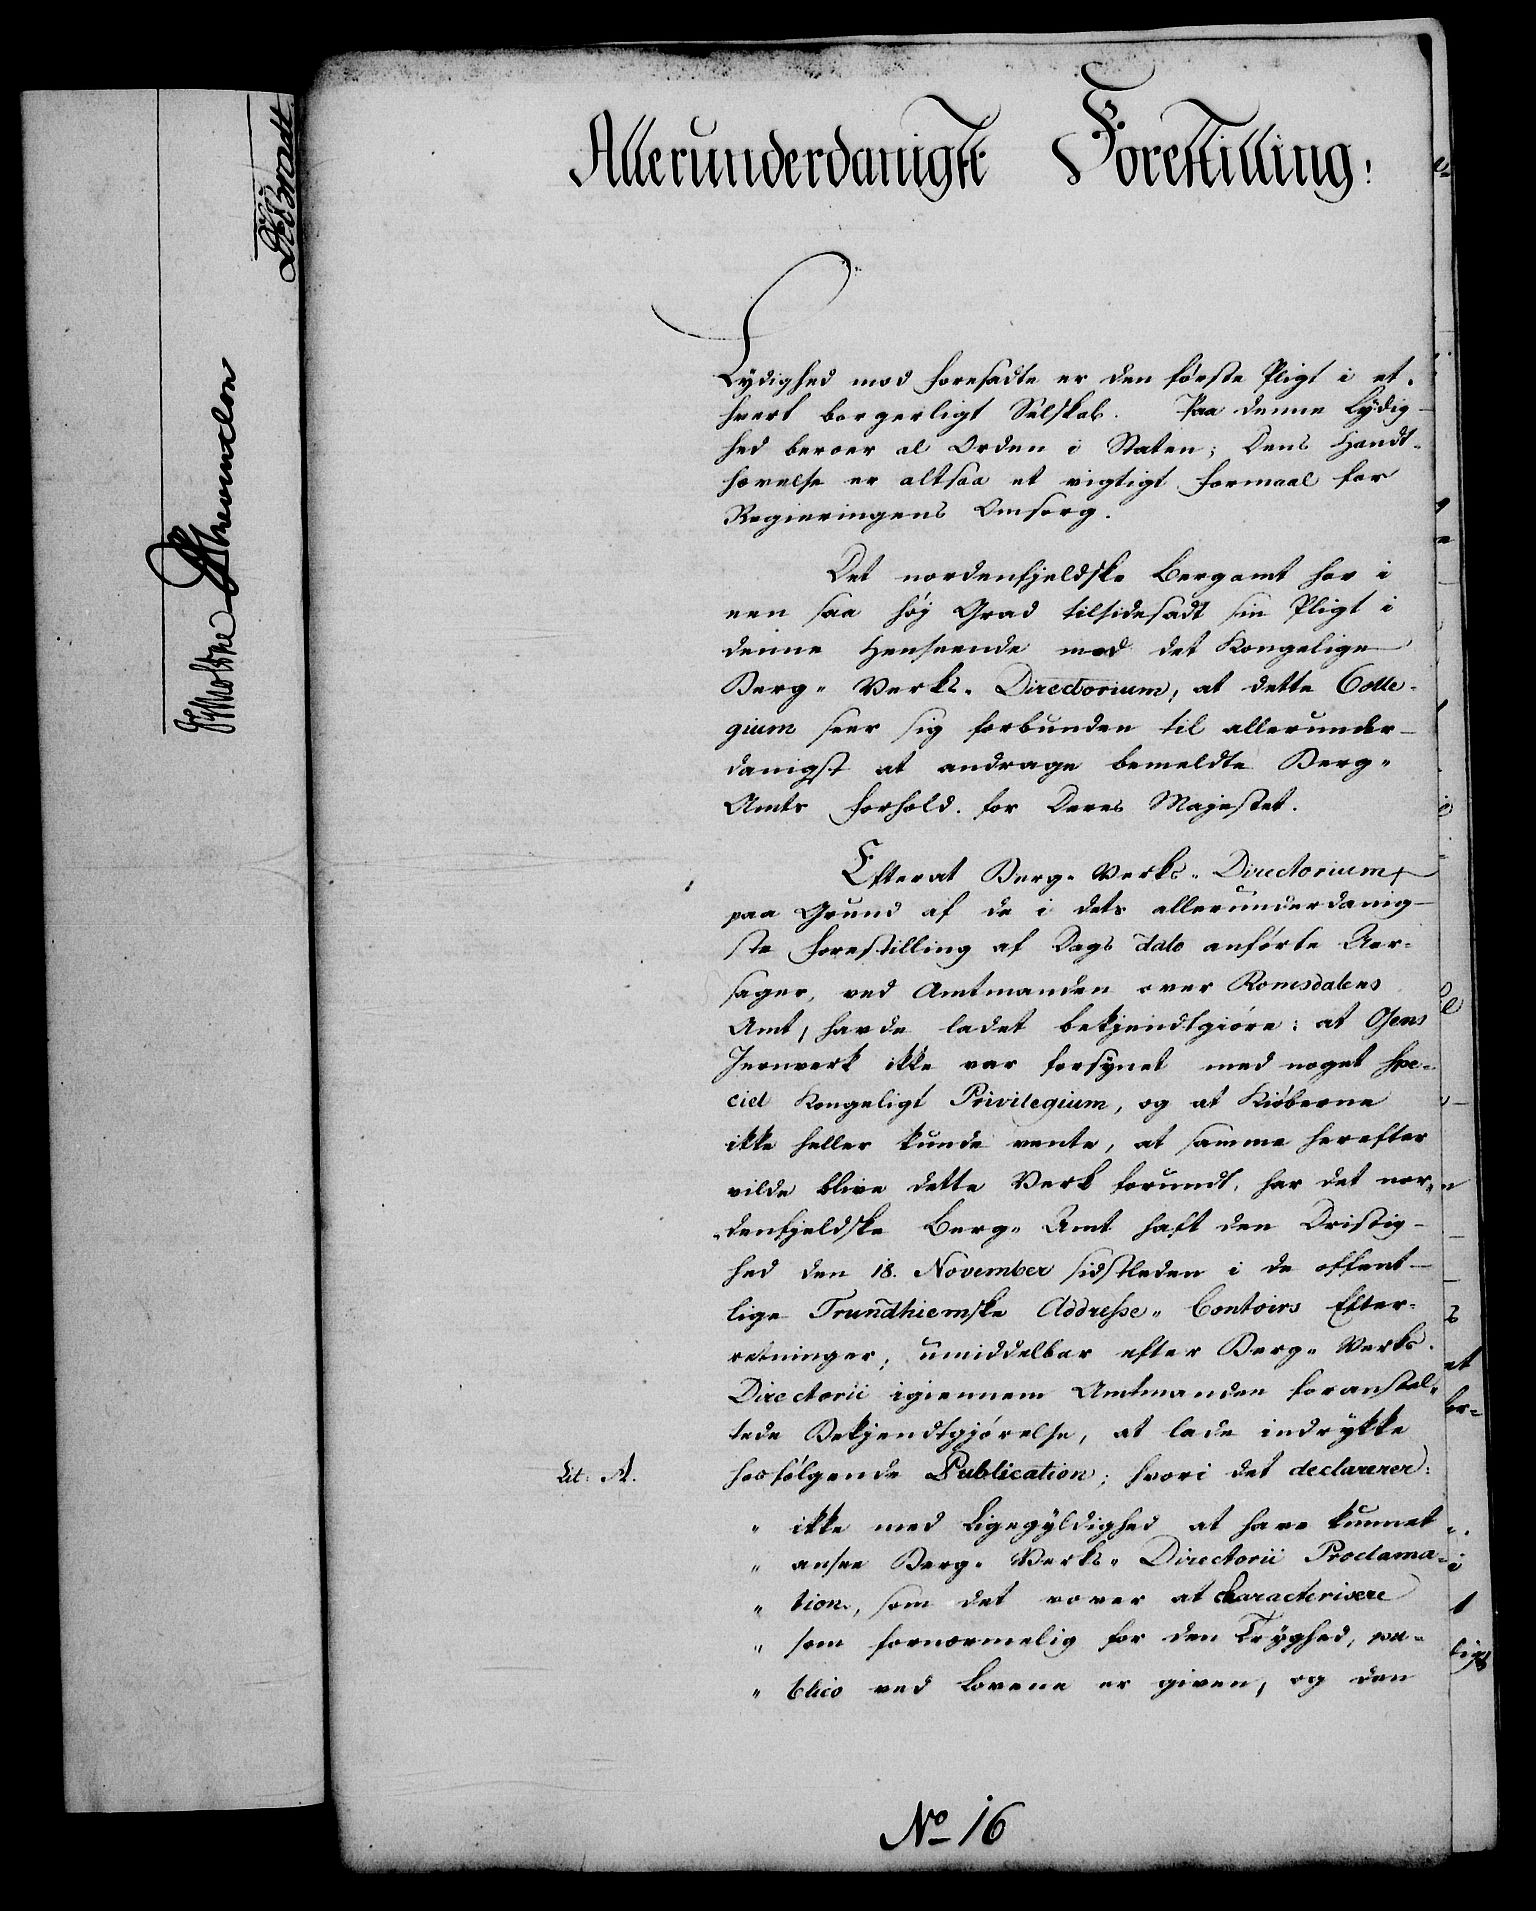 Allerunderdanigst Forestilling:
Lydighed mod foresadte er den første Pligt i et-
hvert borgerligt Selskab. Paa denne Lydig-
hed beroer al Orden i Staten; Dens Handt-
hævelse er altsaa et vigtigt Formaal for
Regieringens Omsorg.
Det nordenfjeldske Bergamt har i
een saa høj Grad tilsidesadt sin Pligt i
denne Henseende mod det Kongelige
Berg- Verks- Directorium, at dette Colle-
gium seer sig forbunden til allerunder-
danigst at andrage bemeldte Berg-
Amts Forhold for Deres Majestet.
Efterat Berg- Verks- Directorium,
paa Grund af de i dets allerunderdanig-
ste Forestilling af Dags dato anførte Aar-
sager, ved Amtmanden over Romsdalens
Amt, havde ladet bekjendtgiøre: at Osens
Jernverk ikke var forsynet med noget spe-
ciel Kongeligt Privilegium, og at Kiøberne
ikke heller kunde vente, at samme herefter
vilde blive dette Verk forundt, har det nor-
denfjeldske Berg- Amt haft den Dristig-
hed den 18. November sidstleden i de offent-
lige Trundhiemske Addresse- Contoirs Efter-
retninger, umiddelbar efter Berg- Verks-
Directorii igiennem Amtmanden foranstal-
tede Bekjendtgjørelse, at lade indrykke
Lit: A. hosfølgende Publication; hvori det declarerer:
" ikke med Ligegyldighed at have kunnet
" ansee Berg- Verks- Directorii Proclama-
" tion, som det vover at characterisere
" som fornærmelig for den Tryghed, pu-
" blico ved Lovene er given, og den
No 16